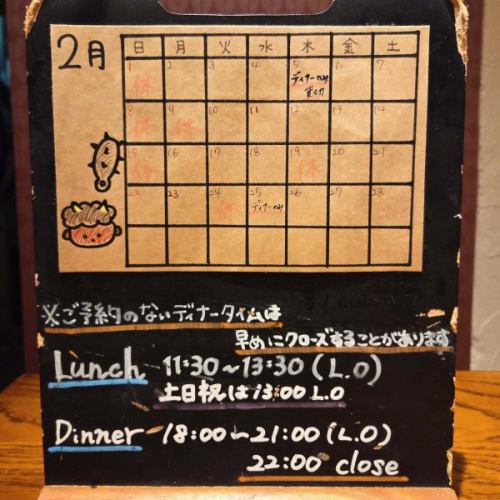 2月
日 月 火 水 木 金 土
1 2 3 4 5 6 7
休 ディナーのみ
8 9 10 11 12 13 14
休 休
15 16 17 18 19 20 21
休 休
23 24 25 26 27 28
休 ディナーのみ
※ご予約のないディナータイムは
早めにクローズすることがあります
Lunch 11:30~13:30(L.O)
土日祝は13:00 L.O
Dinner 18:00~21:00(L.O)
22:00 close